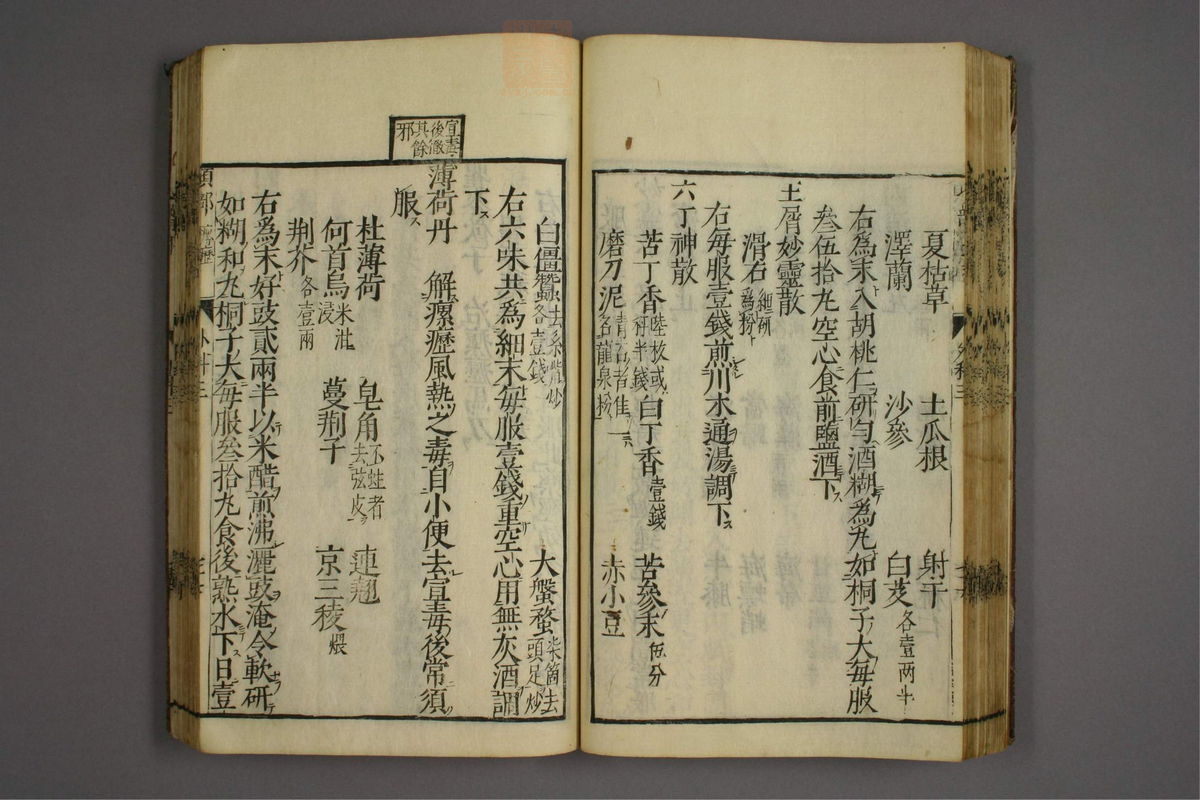 夏枯草 土瓜根 射干
澤蘭 沙參 白芨各壹兩半
右為末入胡桃仁研勻酒糊為丸如桐子大每服
叁伍拾丸空心食前鹽酒下ス
土屑妙靈散
滑石細研為粉
右每服壹錢煎川木通湯調下ス
六丁神散
苦丁香陸枚或秤半錢 白丁香壹錢 苦參末伍分
磨刀泥青石者佳名龍泉粉 赤小豆
白僵蠶去糸觜炒各壹錢 大螌蝥柒箇去頭足炒
右六味共為細末每服壹錢重空心用無灰酒調
下ス
宣毒後徹其餘邪
薄荷丹 解瘰癧風熱之毒自小便去宣毒後常須
服ス
杜薄荷 皂角不蛀者去弦皮 連翹
何首烏米泔浸 蔓荆子 京三稜煨
荆芥各壹兩
右為末好豉貳兩半以米醋煎沸灑豉淹令軟研
如糊和丸桐子大每服叁拾丸食後熟水下日壹